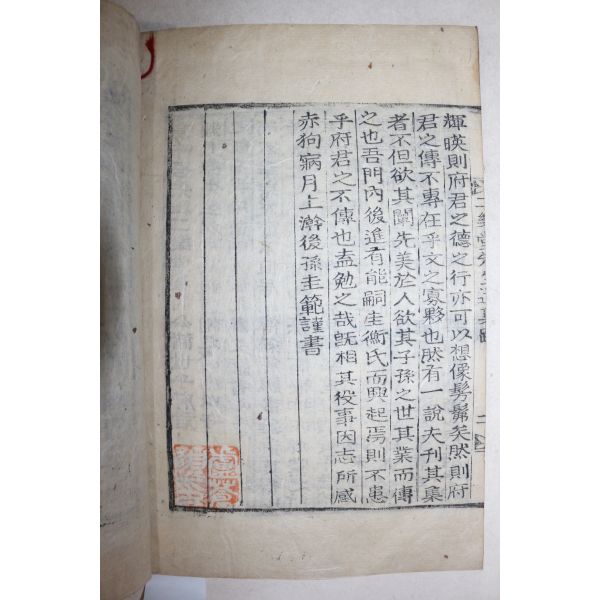 輝暎則府君之德之行亦可以想像髣髴矣然則府
君之傳不專在乎文之寡夥也然有一說夫刊其集
者不但欲其闡先美於人欲其子孫之世其業而傳
之也吾門內後進有能嗣圭衡氏而興起焉則不患
乎府君之不傳也盍勉之哉旣相其役事因志所感
赤狗病月上澣後孫圭範謹書